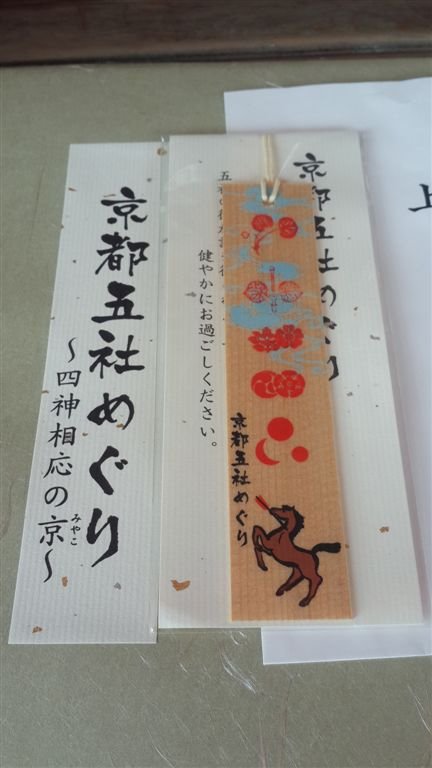 京都五社めぐり
～四神相応の京～
みやこ
京都五社めぐり
健やかにお過ごしください。
京都五社めぐり
上